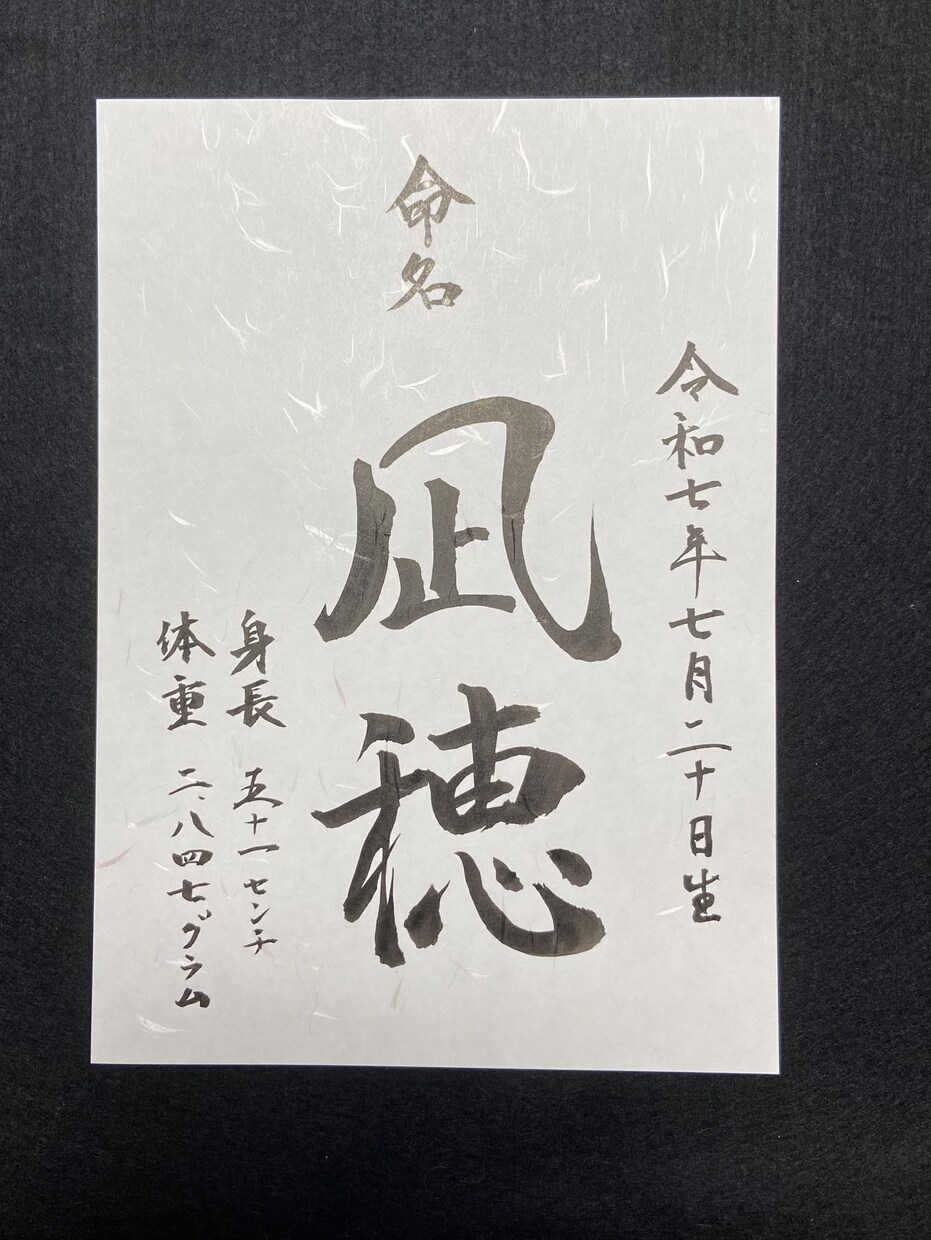 令和七年七月二十日生
命名
凪穂
身長 五十一センチ
体重 二、八四七グラム